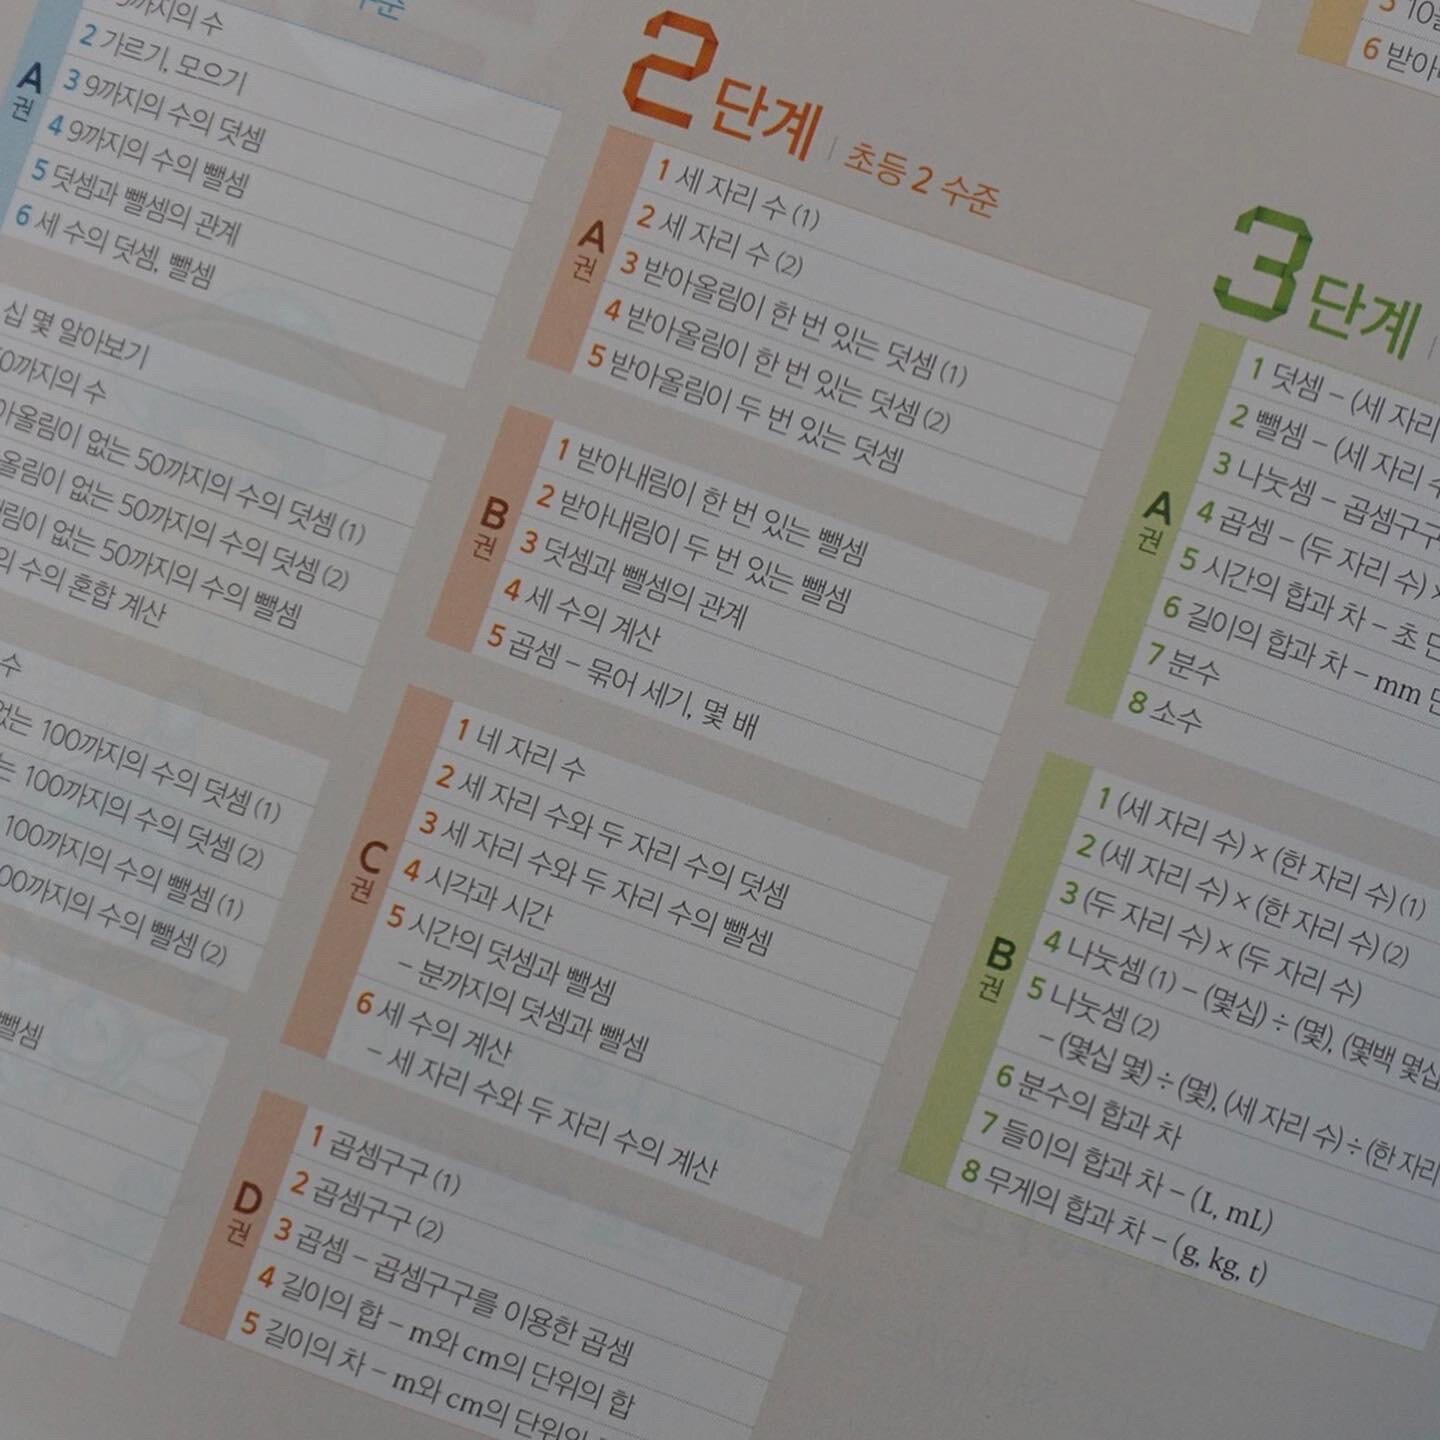 수준
A
권
2 가르기, 모으기
3 9까지의 수의 덧셈
4 9까지의 수의 뺄셈
5 덧셈과 뺄셈의 관계
6 세 수의 덧셈, 뺄셈
십 몇 알아보기
50까지의 수
없는 50까지의 수의 덧셈 (1)
없는 50까지의 수의 덧셈 (2)
없는 50까지의 수의 뺄셈
수의 혼합 계산
수
없는 100까지의 수의 덧셈 (1)
100까지의 수의 덧셈 (2)
100까지의 수의 뺄셈 (1)
100까지의 수의 뺄셈 (2)
뺄셈
2단계 | 초등 2 수준
A
권
1 세 자리 수 (1)
2 세 자리 수 (2)
3 받아올림이 한 번 있는 덧셈 (1)
4 받아올림이 한 번 있는 덧셈 (2)
5 받아올림이 두 번 있는 덧셈
B
권
1 받아내림이 한 번 있는 뺄셈
2 받아내림이 두 번 있는 뺄셈
3 덧셈과 뺄셈의 관계
4 세 수의 계산
5 곱셈 – 묶어 세기, 몇 배
C
권
1 네 자리 수
2 세 자리 수와 두 자리 수의 덧셈
3 세 자리 수와 두 자리 수의 뺄셈
4 시각과 시간
5 시간의 덧셈과 뺄셈
– 분까지의 덧셈과 뺄셈
6 세 수의 계산
– 세 자리 수와 두 자리 수의 계산
D
권
1 곱셈구구 (1)
2 곱셈구구 (2)
3 곱셈 – 곱셈구구를 이용한 곱셈
4 길이의 합 – m와 cm의 단위의 합
5 길이의 차 – m와 cm의 단위의
3단계 |
A
권
1 덧셈 – (세 자리
2 뺄셈 – (세 자리
3 나눗셈 – 곱셈구구
4 곱셈 – (두 자리 수) ×
5 시간의 합과 차 – 초
6 길이의 합과 차 – mm
7 분수
8 소수
B
권
1 (세 자리 수) × (한 자리 수) (1)
2 (세 자리 수) × (한 자리 수) (2)
3 (두 자리 수) × (두 자리 수)
4 나눗셈 (1) – (몇십) ÷ (몇), (몇백 몇십
5 나눗셈 (2)
– (몇십 몇) ÷ (몇), (세 자리 수) ÷ (한 자리
6 분수의 합과 차
7 들이의 합과 차 – (L, mL)
8 무게의 합과 차 – (g, kg, t)
6